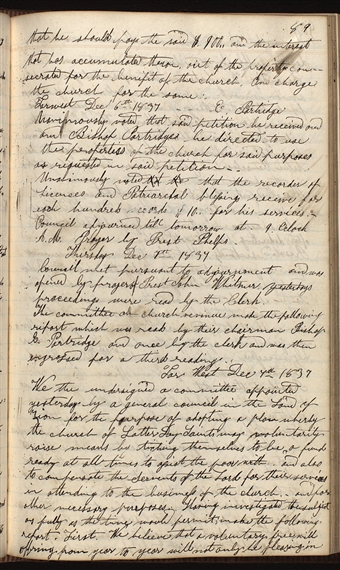 89
that he should pay the said $ and the interest
that has accumulated thereon, out of the property con-
secrated for the benefit of the church, and charge
the church for the same
Farwest Dec 6th 1837 E. Partridge
Unanimously voted that said petition be received and
our Bishop Partridge be directed to use
the properties of the church for said purposes
as requested in said petition.
Unanimously voted that the recorder of
licences and Patriarchal blessing receive for
each hundred words 10. for his services
Council adjourned till tomorrow at 9 Oclock
A.M. Prayer by Prest Phelps.
Thursday Dec 7th 1837
Council met pursuant to adjournment and was
opened by prayer by Prest John Whitmer yesterdays
proceedings were read by the Clerk
The committee on church revenue made the following
report which was read by their chairman Bishop
E. Partridge and once by the clerk and was then
engrossed for a third reading.
Far West Dec 7th 1837
We the undersigned a committee appointed
yesterday by a general council in the Land of
Zion for the purpose of adopting a plan whereby
the church of Latter Day Saints may voluntarily
raise means by tithing themselves to be a fund
ready at all times to assist the poor with and also
to compensate the Servants of the Lord for their services
in attending to the business of the church and for
other necessary purposes, Having investigated the subject
as fully as the time would permit, make the following
report. First, We believe that a voluntary freewill
offering from year to year will not only be pleasing in